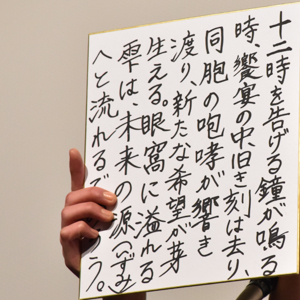 十二時を告げる鐘が鳴る
時、饗宴の中、旧き刻は去り、
同胞の咆哮が響き
渡り、新たな希望が芽
生える。眼窩に溢れる
雫は、未来の源(いずみ)
へと流れるで う。